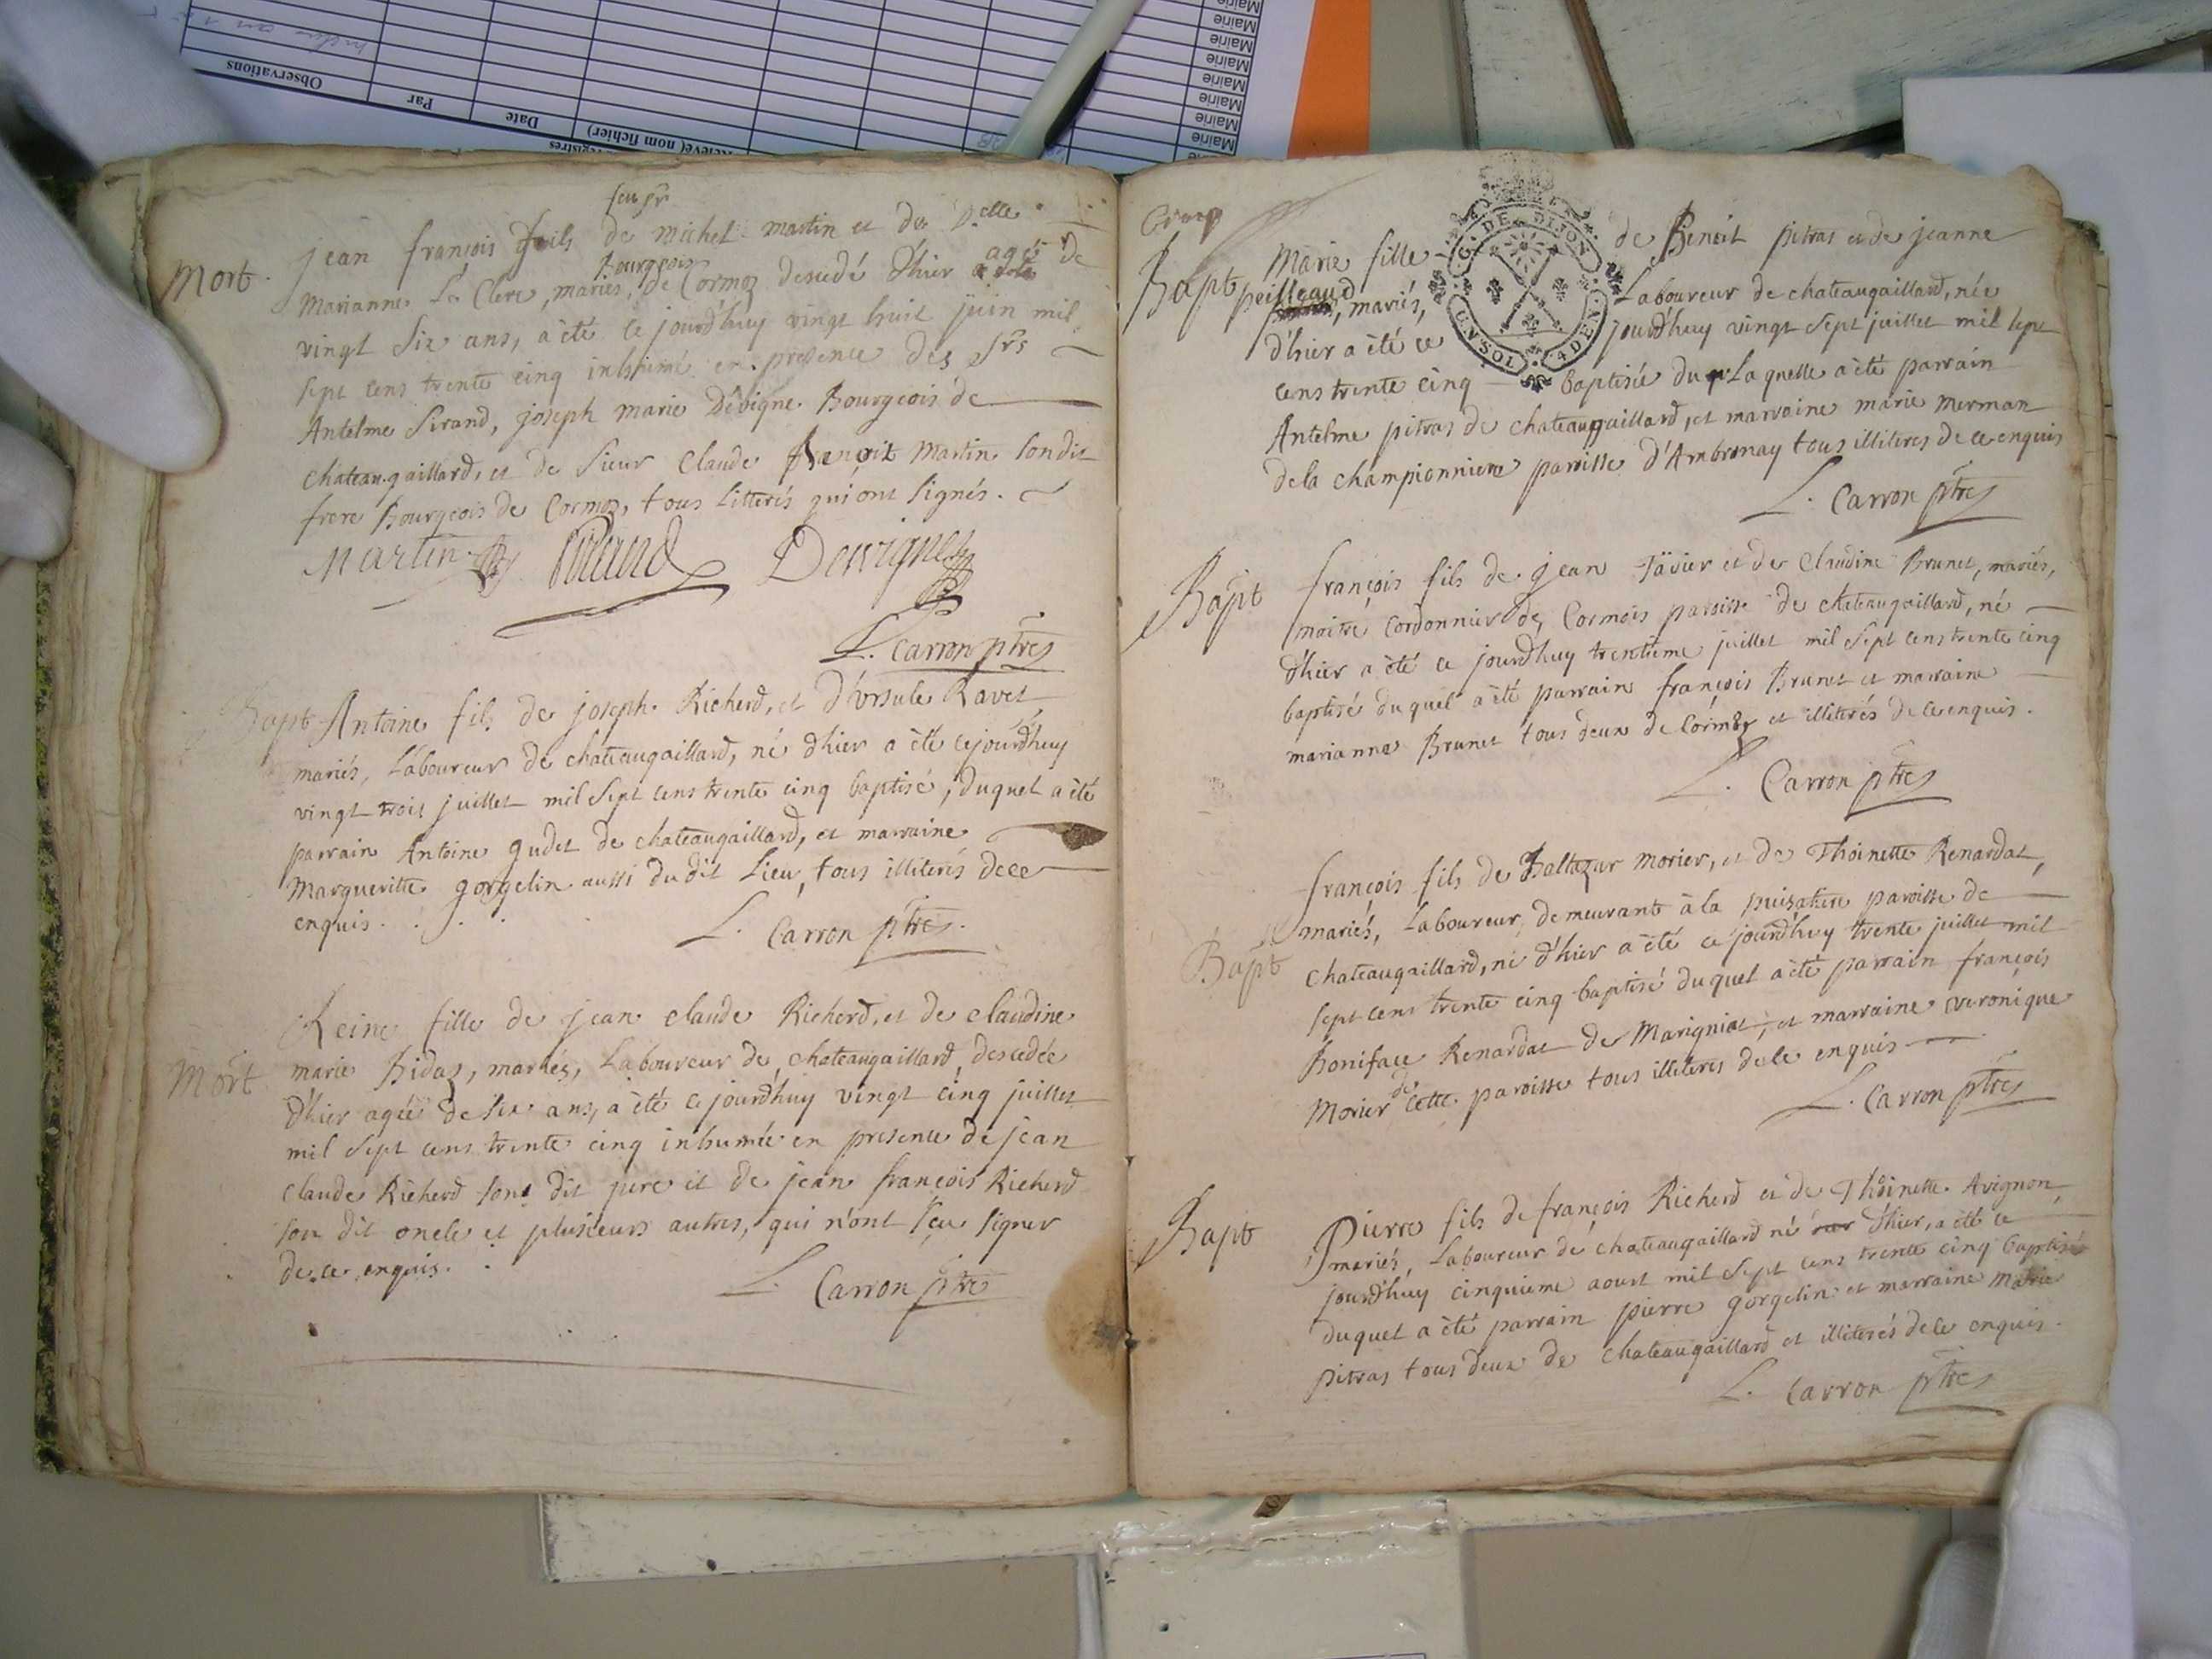 Observations
Par
Date
Relevé (nom fichier)
registres
Mairie
Mairie
Mairie
Mairie
Mairie
Mairie
Mairie
Mairie
feu sr
jean françois fils de michel martin et de Delle
Mort.
bourgeois
Marianne Le Clerc, mariés, de Cormoz decedé d'hier agé de
vingt six ans, a été ce jourd'huy vingt huit juin mil
sept cens trente cinq inhumé en presence des Srs
Antelme Sirand, joseph marie Dévigne Bourgeois de
chateaugaillard, et de sieur Claude Benoit Martin son dit
frere Bourgeois de Cormoz, tous litterés qui ont signés.
Martin Sirand Devigne
L. Carron ptre
Bapt Antoine fils de joseph Richerd, et d'Ursule Ravet
mariés, Laboureur de chateaugaillard, né d'hier a été cejourd'huy
vingt trois juillet mil sept cens trente cinq baptisé, duquel a été
parrain Antoine gudet de chateaugaillard, et marraine
Margueritte gorgelin aussi du dit Lieu, tous illiterés de ce
enquis.
L. Carron ptre.
Reine fille de jean claude Richerd, et de claudine
Mort
marie Bidaz, mariés, Laboureur de chateaugaillard, decedée
d'hier agée de six ans, a été ce jourd'huy vingt cinq juillet
mil sept cens trente cinq inhumée en presence de jean
claude Richerd son dit pere et de jean françois Richerd
son dit oncle et plusieurs autres, qui n'ont sçeu signer
de ce enquis.
L. Carron ptre
Cinq
G. DE DIJON
UN SOL 4 DEN.
Bapt Marie fille de Benoit pitras et de jeanne
peilleaud, mariés, Laboureur de chateaugaillard, née
d'hier a été ce jourd'huy vingt sept juillet mil sept
cens trente cinq baptisée du Laquelle a été parrain
Antelme pitras de chateaugaillard, et marraine marie merman
de la championniere paroisse d'Ambronay tous illiteres de ce enquis
L. Carron ptre
Bapt
françois fils de jean Favier et de Claudine Brunet, mariés,
maitre cordonnier de Cormois paroisse de chateaugaillard, né
d'hier a été ce jourd'huy trentieme juillet mil sept cens trente cinq
baptisé duquel a été parrain françois Brunet et marraine
marianne Brunet tous deux de Cormoz et illiterés de ce enquis.
L. Carron ptre
françois fils de Baltazar morier, et de Thoinette Renardat,
mariés, Laboureur, demeurant à la puisatiere paroisse de
Bapt
chateaugaillard, né d'hier a été ce jourd'huy trente juillet mil
sept cens trente cinq baptisé duquel a été parrain françois
Boniface Renardat de Marigniat, et marraine veronique
Morier de cette paroisse tous illiteres de ce enquis
L. Carron ptre
Bapt
Pierre fils de françois Richerd et de Thoinette Avignon,
mariés, Laboureur de chateaugaillard né d'hier, a été ce
jourd'huy cinquieme aoust mil sept cens trente cinq baptisé
duquel a été parrain pierre gorgelin et marraine marie
pitras tous deux de chateaugaillard et illiterés de ce enquis.
L. Carron ptre